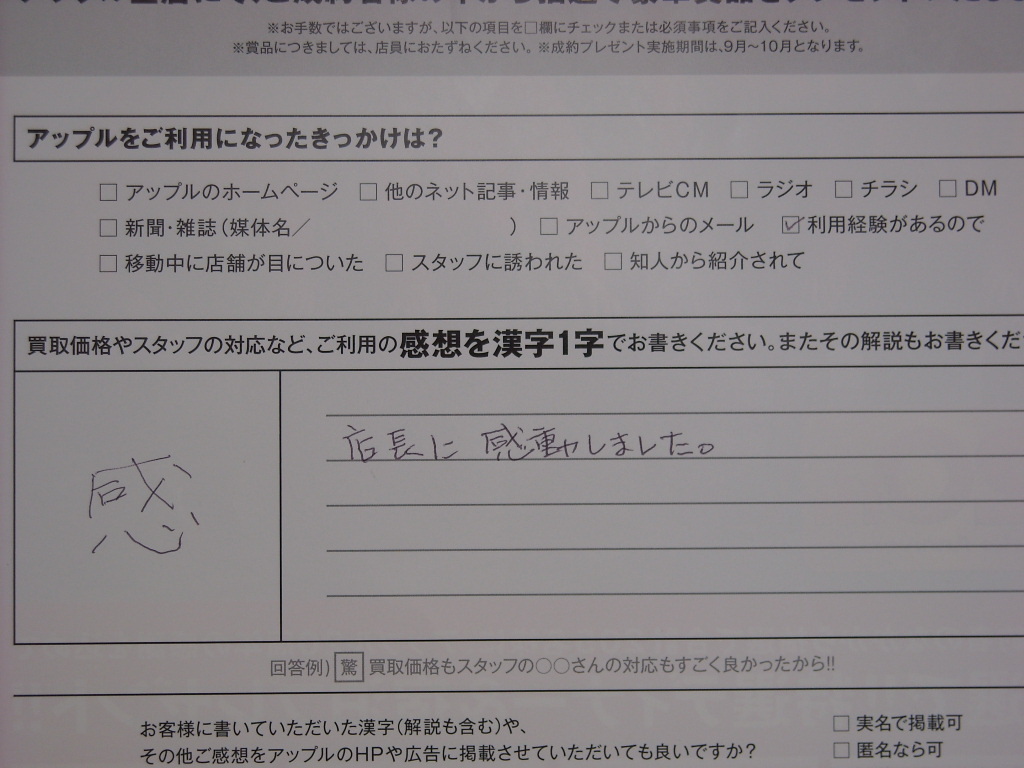 ※お手数ではございますが、以下の項目を□欄にチェックまたは必須事項をご記入ください。
※賞品につきましては、店員におたずねください。※成約プレゼント実施期間は、9月〜10月となります。
アップルをご利用になったきっかけは?
□ アップルのホームページ □ 他のネット記事・情報 □ テレビCM □ ラジオ □ チラシ □ DM
□ 新聞・雑誌(媒体名／ ) □ アップルからのメール ☑ 利用経験があるので
□ 移動中に店舗が目についた □ スタッフに誘われた □ 知人から紹介されて
買取価格やスタッフの対応など、ご利用の感想を漢字1字でお書きください。またその解説もお書きくだ
感
店長に 感動しました。
回答例) 驚 買取価格もスタッフの〇〇さんの対応もすごく良かったから!!
お客様に書いていただいた漢字(解説も含む)や、
その他ご感想をアップルのHPや広告に掲載させていただいても良いですか?
□ 実名で掲載可
□ 匿名なら可